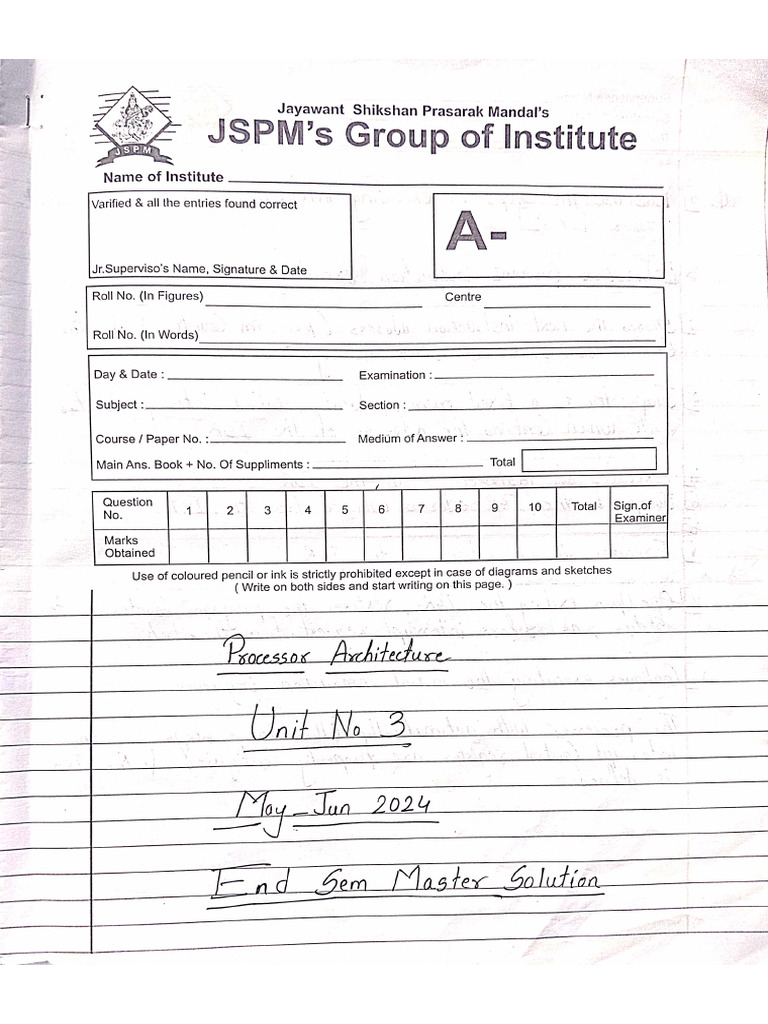 Jayawant Shikshan Prasarak Mandal's
JSPM's Group of Institute
JSPM
Name of Institute
Varified & all the entries found correct
A-
Jr.Superviso's Name, Signature & Date
Roll No. (In Figures) Centre
Roll No. (In Words)
Day & Date : Examination :
Subject : Section :
Course / Paper No. : Medium of Answer :
Main Ans. Book + No. Of Suppliments : Total
Question No. 1 2 3 4 5 6 7 8 9 10 Total Sign.of Examiner
Marks Obtained
Use of coloured pencil or ink is strictly prohibited except in case of diagrams and sketches
( Write on both sides and start writing on this page. )
Processor Architecture
Unit No 3
May-Jun 2024
End Sem Master Solution